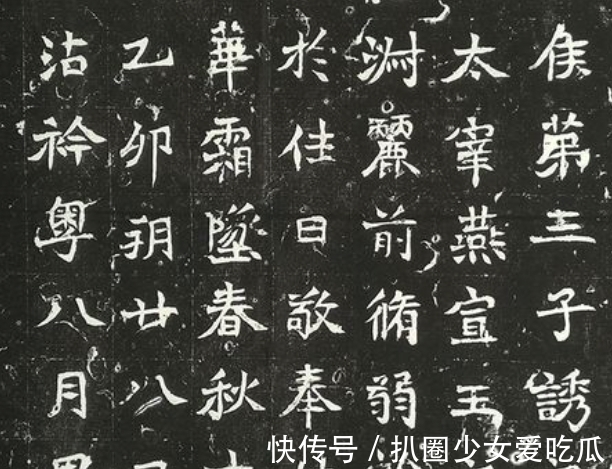 侯第三子誘
太宰燕宣王
渊麗前脩弱
於佳日敬奉
華霜墜春秋
乙卯玥廿八
沾衿粤八月
快传号 / 扒圈少女爱吃瓜